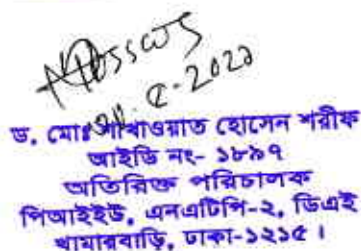 ড. মোঃ সাখাওয়াত হোসেন শরীফ
আইডি নং- ১৮৯৭
অতিরিক্ত পরিচালক
পিআইইউ, এনএটিপি-২, ডিএই
খামারবাড়ি, ঢাকা-১২১৫।